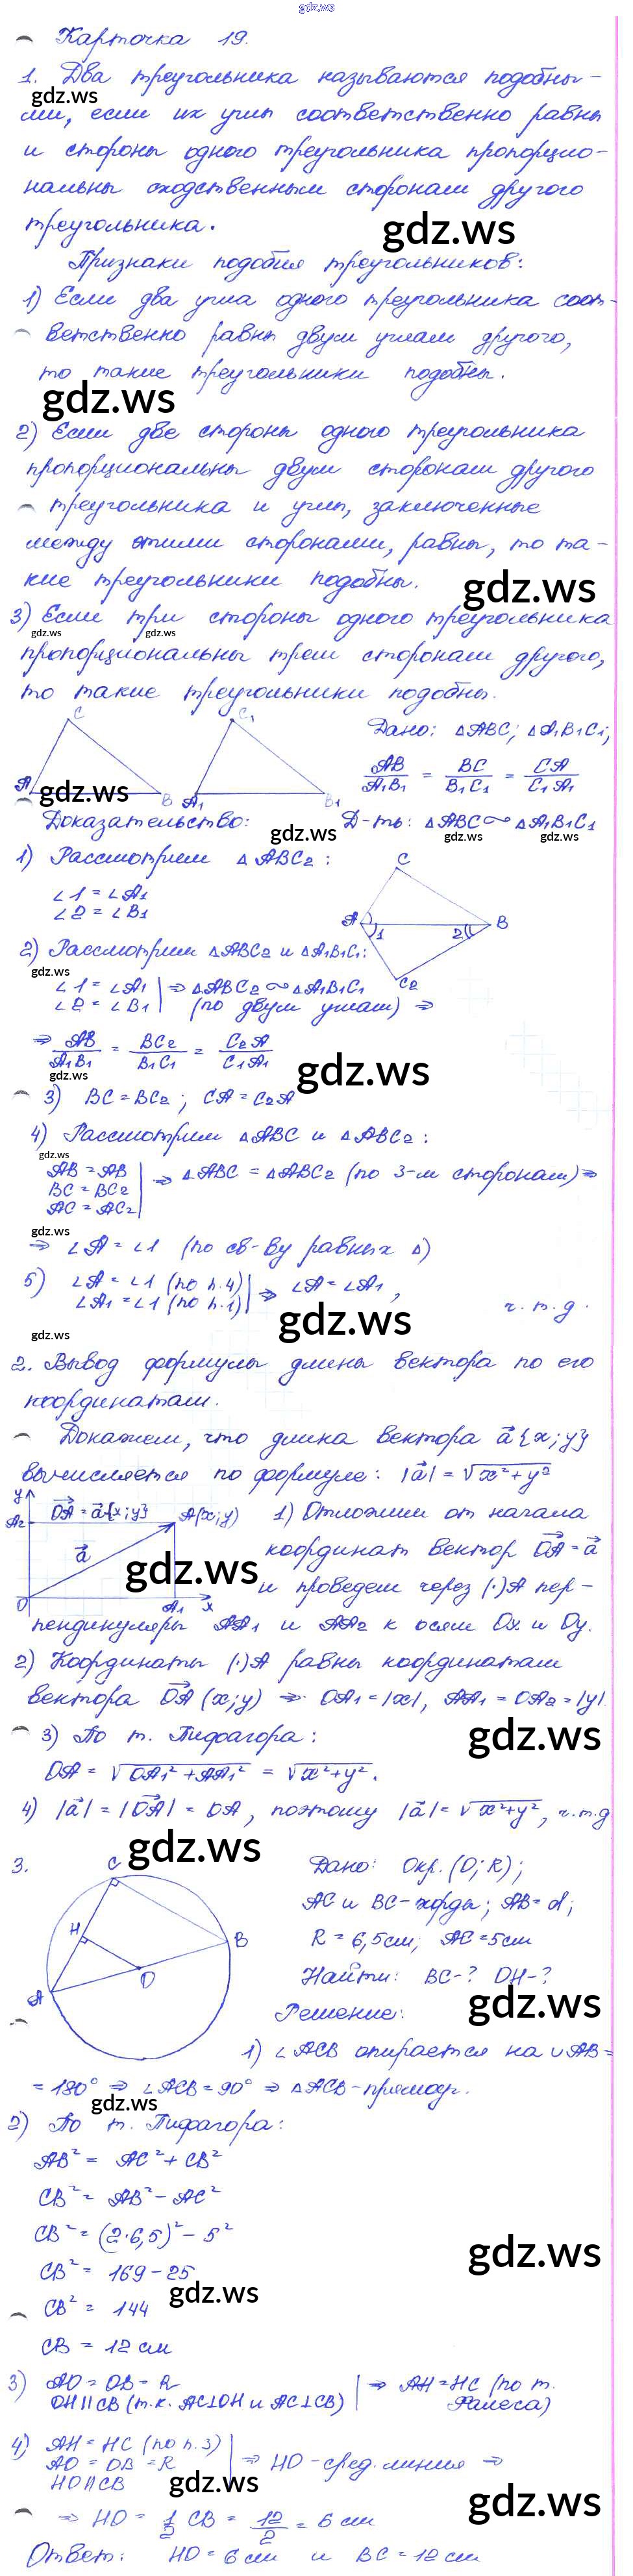 gdz.ws
Карточка 19.
1. Два треугольника называются подобны-
gdz.ws
ми, если их углы соответственно равны
и стороны одного треугольника пропорцио-
нальны сходственным сторонам другого
треугольника.
gdz.ws
Признаки подобия треугольников:
1) Если два угла одного треугольника соот-
ветственно равны двум углам другого,
то такие треугольники подобны.
gdz.ws
2) Если две стороны одного треугольника
пропорциональны двум сторонам другого
треугольника и углы, заключенные
между этими сторонами, равны, то та-
кие треугольники подобны.
gdz.ws
3) Если три стороны одного треугольника
gdz.ws gdz.ws
пропорциональны трем сторонам другого,
то такие треугольники подобны.
C C₁ Дано: △ABC; △A₁B₁C₁;
AB/A₁B₁ = BC/B₁C₁ = CA/C₁A₁
A B A₁ B₁
gdz.ws
Доказательство: Д-ть: △ABC ∾ △A₁B₁C₁
gdz.ws gdz.ws gdz.ws
1) Рассмотрим △ABC₂:
∠1 = ∠A₁
∠2 = ∠B₁
C A 1 2 B C₂
2) Рассмотрим △ABC₂ и △A₁B₁C₁:
gdz.ws
∠1 = ∠A₁ | ⇒ △ABC₂ ∾ △A₁B₁C₁
∠2 = ∠B₁ | (по двум углам) ⇒
⇒ AB/A₁B₁ = BC₂/B₁C₁ = C₂A/C₁A₁
gdz.ws gdz.ws
3) BC = BC₂; CA = C₂A
4) Рассмотрим △ABC и △ABC₂:
gdz.ws
AB = AB
BC = BC₂ | ⇒ △ABC = △ABC₂ (по 3-м сторонам) ⇒
AC = AC₂
gdz.ws
⇒ ∠A = ∠1 (по св-ву равных △)
5) ∠A = ∠1 (по п.4) | ⇒ ∠A = ∠A₁,
∠A₁ = ∠1 (по п.1) | ч.т.д.
gdz.ws
gdz.ws
2. Вывод формулы длины вектора по его
координатам.
Докажем, что длина вектора a⃗{x;y}
вычисляется по формуле: |a⃗| = √x²+y²
y A₂ OA⃗ = a⃗{x;y} A(x;y) 1) Отложим от начала
a⃗ координат вектор OA⃗ = a⃗
gdz.ws
O A₁ x и проведем через (·)A пер-
пендикуляры AA₁ и AA₂ к осям Ox и Oy.
2) Координаты (·)A равны координатам
вектора OA⃗ (x;y) ⇒ OA₁ = |x|, AA₁ = OA₂ = |y|.
gdz.ws
3) По т. Пифагора:
OA = √OA₁² + AA₁² = √x²+y².
4) |a⃗| = |OA⃗| = OA, поэтому |a⃗| = √x²+y², ч.т.д
gdz.ws
3. C H B O A
Дано: Окр. (O; R);
AC и BC - хорды; AB = d;
R = 6,5см; AC = 5см
Найти: BC-? OH-?
gdz.ws
Решение:
1) ∠ACB опирается на ∪AB =
= 180° ⇒ ∠ACB = 90° ⇒ △ACB - прямоуг.
gdz.ws
2) По т. Пифагора:
AB² = AC² + CB²
CB² = AB² - AC²
CB² = (2·6,5)² - 5²
gdz.ws
CB² = 169 - 25
gdz.ws
CB² = 144
CB = 12 см
3) AO = OB = R | ⇒ AH = HC (по т.
OH || CB (т.к. AC⊥OH и AC⊥CB) | Фалеса)
4) AH = HC (по п.3)
AO = OB = R | ⇒ HO - сред. линия ⇒
HO || CB
gdz.ws gdz.ws
⇒ HO = 1/2 CB = 12/2 = 6 см
Ответ: HO = 6 см и BC = 12 см